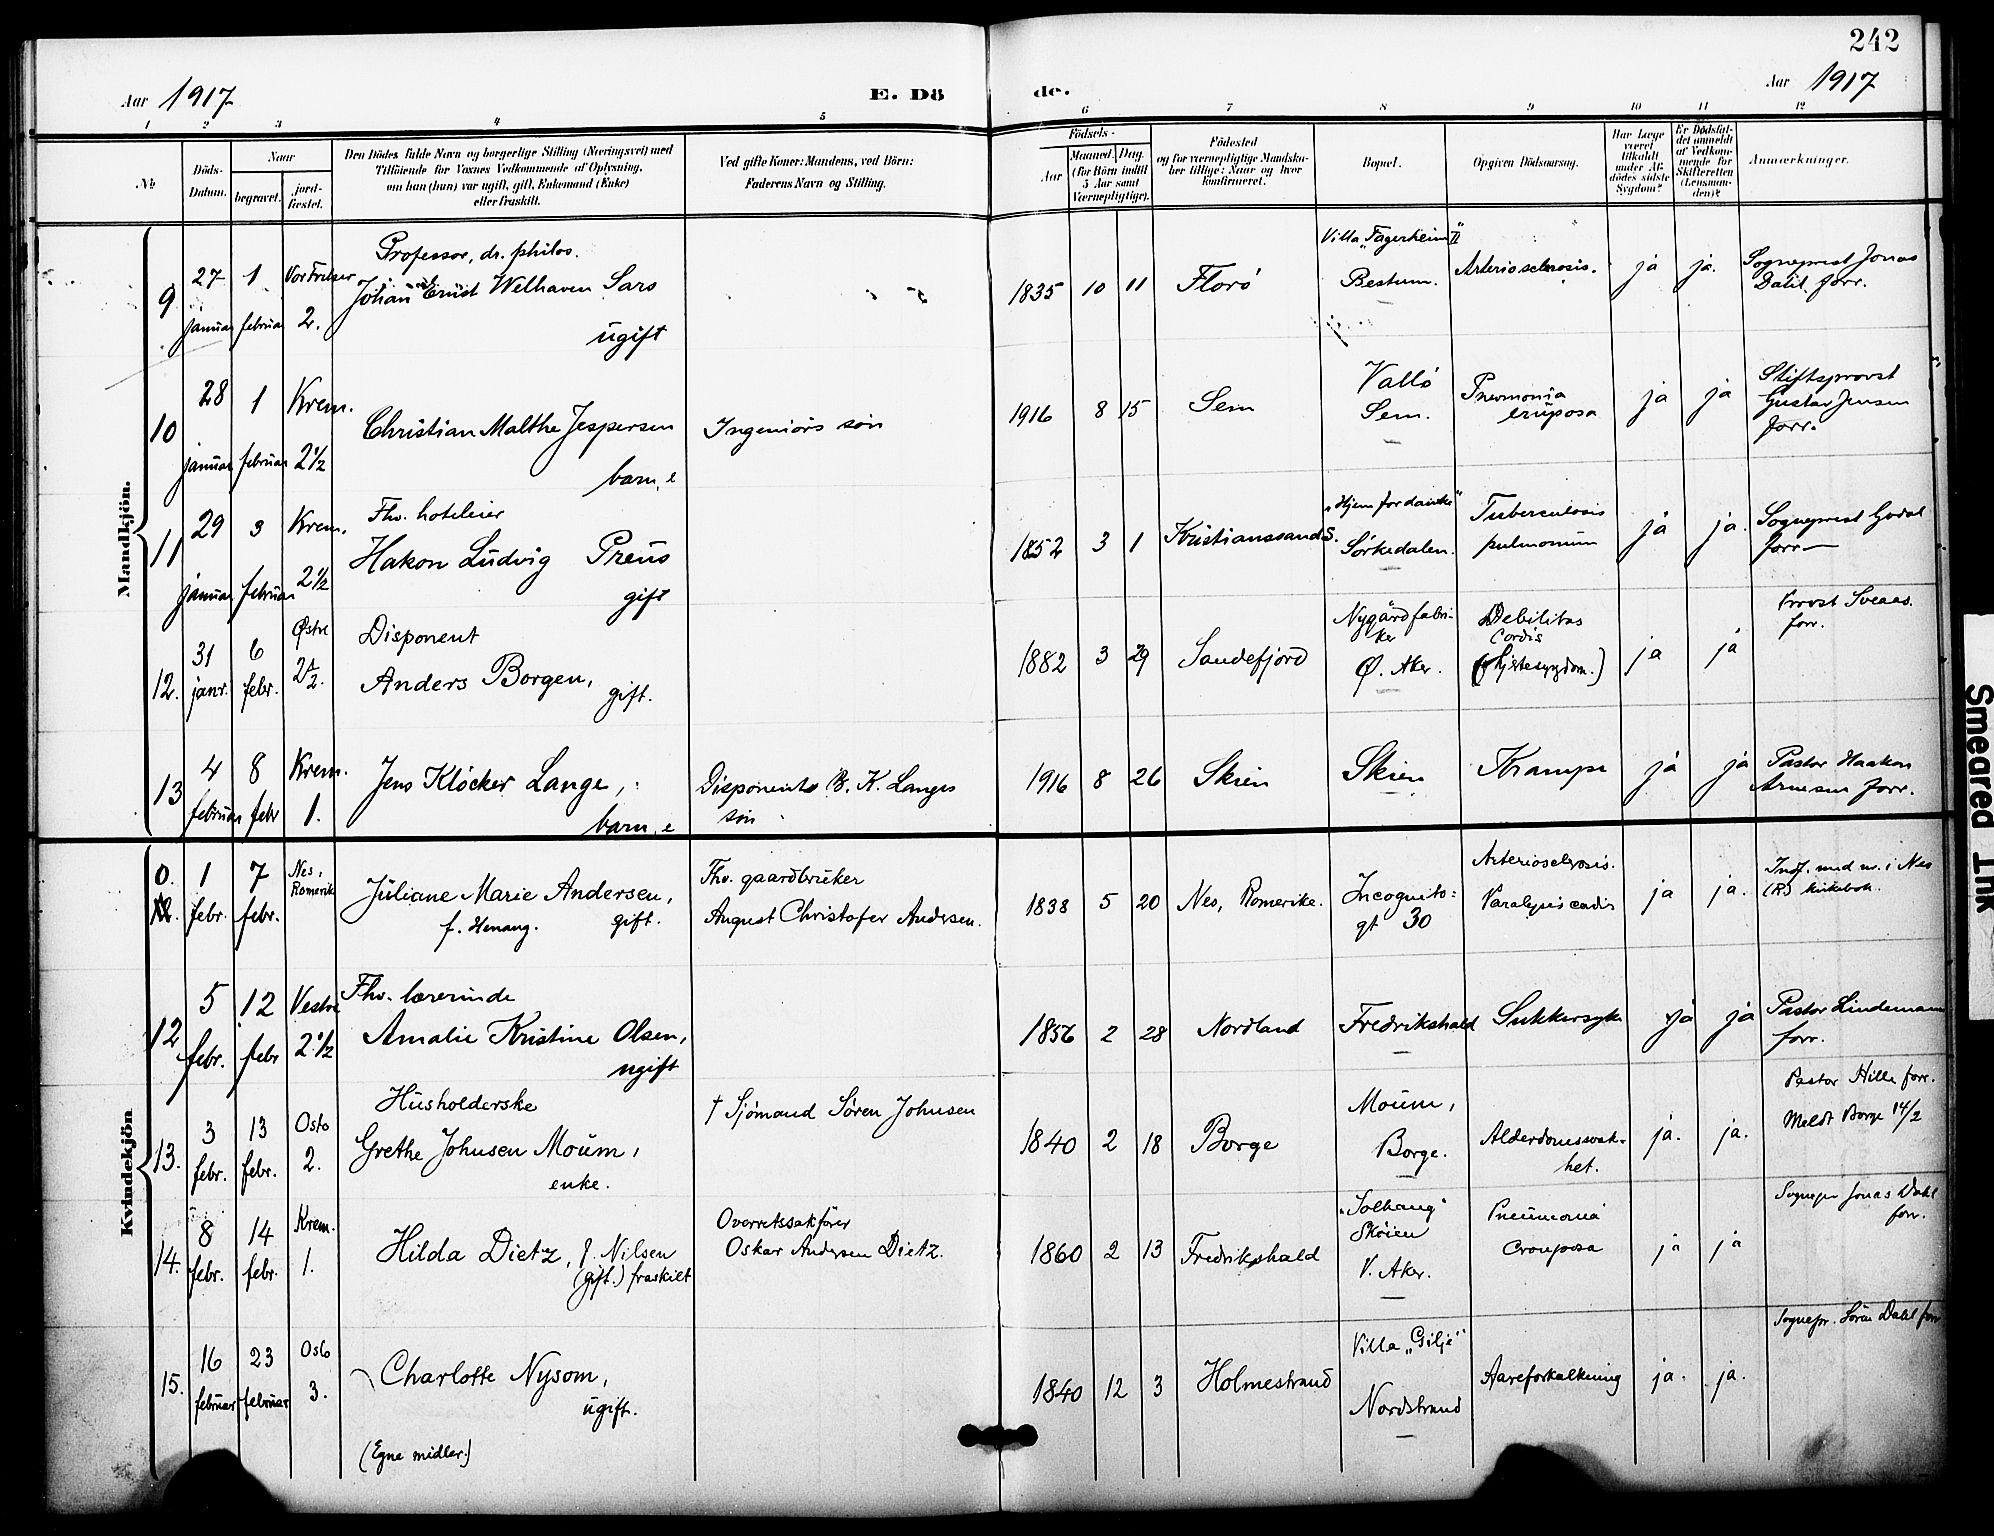 242
Aar 1917
E. Dö
de.
Aar 1917
1 2 3 4 5 6 7 8 9 10 11 12
№
Döds-Datum.
Naar
begravet.
jord-fæstet.
Den Dödes fulde Navn og borgerlige Stilling (Næringsvei) med
Tilföiende for Voxnes Vedkommende af Oplysning,
om han (hun) var ugift, gift, Enkemand (Enke)
eller fraskilt.
Ved gifte Koner: Mandens, ved Börn:
Faderens Navn og Stilling.
Födsels-
Aar
Maaned. Dag.
(for Börn indtil
5 Aar samt
Værnepligtige).
Födested
og for værnepligtige Mandska-
ber tillige: Naar og hvor
konfirmeret.
Bopæl.
Opgiven Dödsaarsag.
Har Læge
været
tilkaldt
under Af-
dödes sidste
Sygdom?
Er Dödsfal-
det anmeldt
af Vedkom-
mende for
Skifteretten
(Lensman-
den)?
Anmærkninger.
Mandkjön.
9
27 januar
1 februar
Vor Frelser 2.
Professor, dr. philos.
Johan Ernst Welhaven Sars
ugift
1835 10 11
Florö
Villa "Fagerheim II"
Bestum.
Arteriosclerosis.
ja
ja.
Sogneprest Jonas
Dahl, forr.
10
28 januar
1 februar
Krem. 2 1/2
Christian Malthe Jespersen
barn, e
Ingeniörs sön
1916 8 15
Sem
Vallö
Sem.
Pnevmonia
cruposa
ja
ja
Stiftsprovst
Gustav Jensen
forr.
11
29 januar
3 februar
Krem. 2 1/2
Fhv. hoteleier
Hakon Ludvig Preus
gift
1852 3 1
Kristianssand S.
"Hjem for døvstumme"
Sörkedalen.
Tuberculosis
pulmonum
ja
ja.
Sogneprest Godal
forr
12.
31 janr.
6 febr.
Østre 2 1/2.
Disponent
Anders Borgen,
gift.
1882 3 29
Sandefjord
Nygård fabri-
ker
Ø. Aker.
Debilitas
Cordis
(Hjertesygdom.)
ja
ja
Provst Sveaas.
forr.
13
4 februar
8 febr
Krem. 1.
Jens Klöcker Lange,
barn, e
Disponent K. Langes
sön
1916 8 26
Skien
Skien
Krampe
ja
ja
Pastor Haakon
Arnesen forr.
Kvindekjön
0.
1 febr.
7 febr.
Nes, Romerike
Juliane Marie Andersen,
f. Henaug. gift.
Fhv. gaardbruker
August Christofer Andersen.
1838 5 20
Nes, Romerike.
Incognito-
gt 30
Arteriosclerosis.
Paralysis cordis
ja
ja.
Indf. med nr. i Nes
(R) kirkebok.
12
5 febr.
12 febr
Vestre 2 1/2
Fhv. lærerinde
Amalie Kristine Olsen,
ugift
1856 2 28
Nordland
Fredrikshald
Sukkersyke
ja
ja
Pastor Lindemann
forr.
13.
3 febr.
13 febr.
Oslo 2.
Husholderske
Grethe Johnsen Moum,
enke.
† Sjömand Sören Johnsen
1840 2 18
Borge
Moum,
Borge.
Alderdomssvak-
het.
ja.
ja.
Pastor Hille forr.
Meldt Borge 14/2
14.
8 febr.
14 febr.
Krem. 1.
Hilda Dietz, f. Nilsen
(gift.) fraskilt
Overretssakförer
Oskar Andersen Dietz.
1860 2 13
Fredrikshald
"Solhaug"
Sköien
V. Aker.
Pneumonia
Crouposa
ja
ja
Sognepr Jonas Dahl
forr.
15.
16 februar
23 februar
Oslo 3.
Charlotte Nysom,
ugift.
(Egne midler)
1840 12 3
Holmestrand
Villa "Gilje"
Nordstrand
Aareforkalkning
ja.
ja.
Sognepr. Sören Dahl forr
Smeared Ink